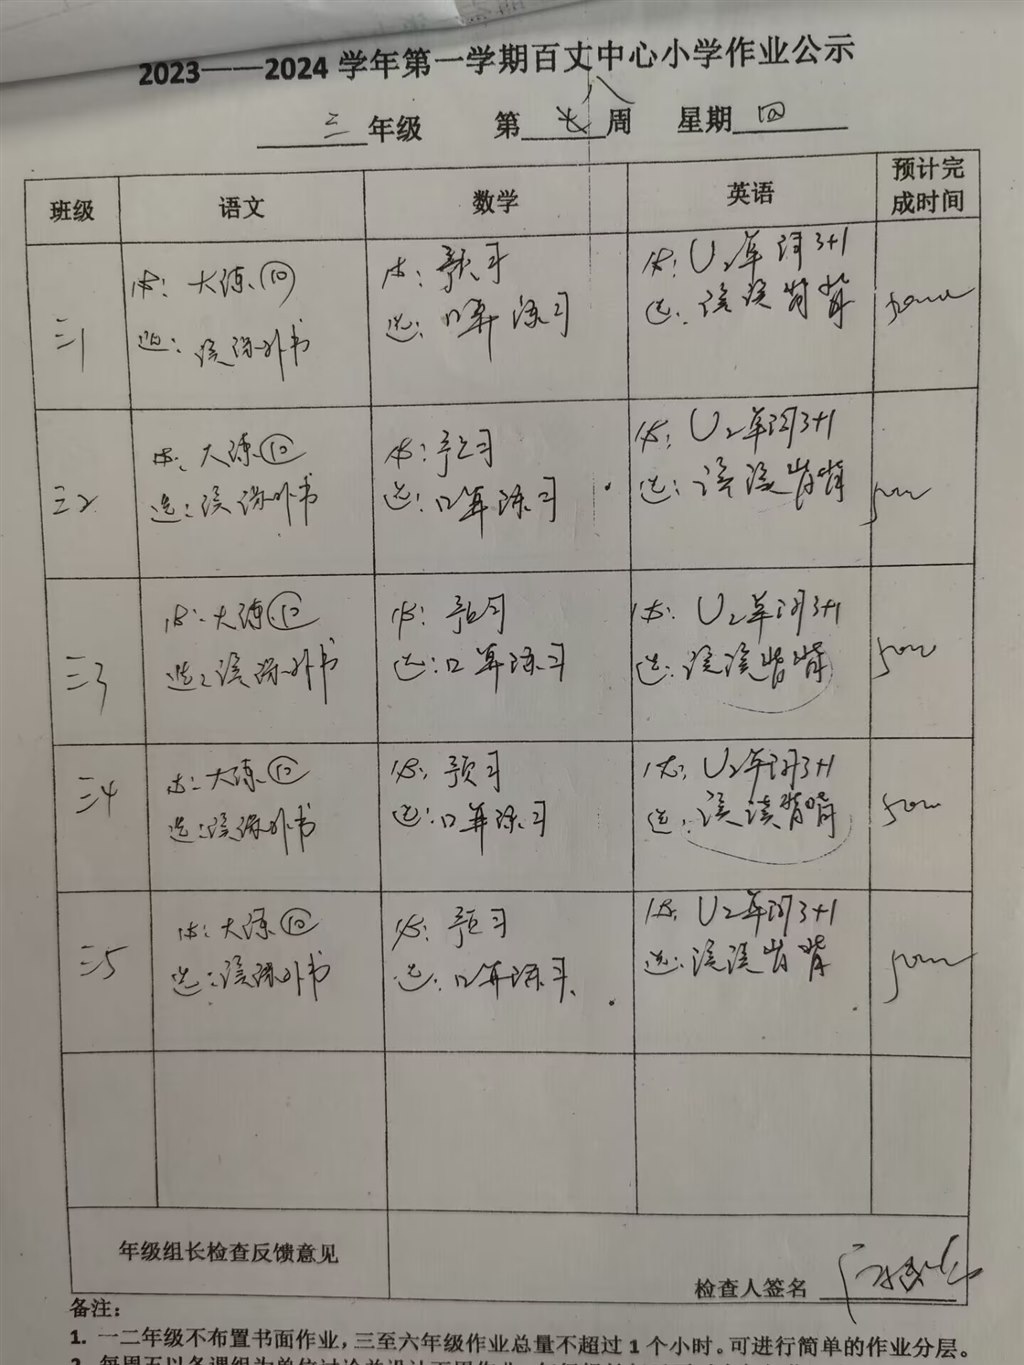 2023——2024 学年第一学期百丈中心小学作业公示
三 年级 第 八 周 星期 四
班级 语文 数学 英语 预计完成时间
三1
必: 大练⑩
选: 读课外书
必: 预习
选: 口算练习
必: U2单词3+1
选: 读读背背
50m
三2
必: 大练⑩
选: 读课外书
必: 预习
选: 口算练习
必: U2单词3+1
选: 读读背背
50m
三3
必: 大练⑩
选: 读课外书
必: 预习
选: 口算练习
必: U2单词3+1
选: 读读背背
50m
三4
必: 大练⑩
选: 读课外书
必: 预习
选: 口算练习
必: U2单词3+1
选: 读读背背
50m
三5
必: 大练⑩
选: 读课外书
必: 预习
选: 口算练习
必: U2单词3+1
选: 读读背背
50m
年级组长检查反馈意见
检查人签名
备注:
1. 一二年级不布置书面作业,三至六年级作业总量不超过 1 个小时。可进行简单的作业分层。